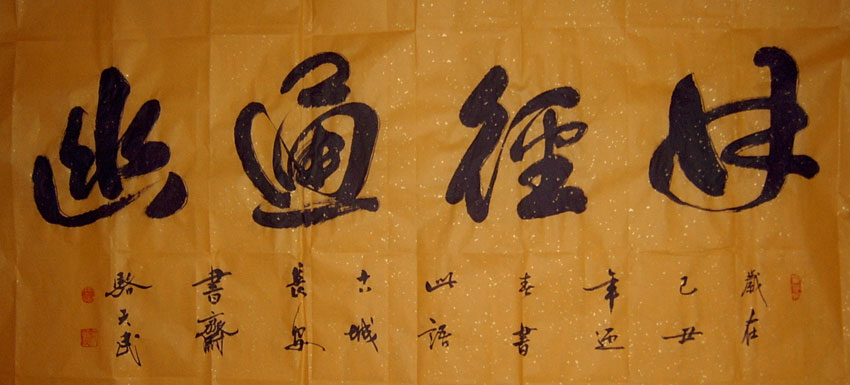 曲徑通幽
歲在
己丑
年迎
春書
此語
古城
長安
書齋
駱天民